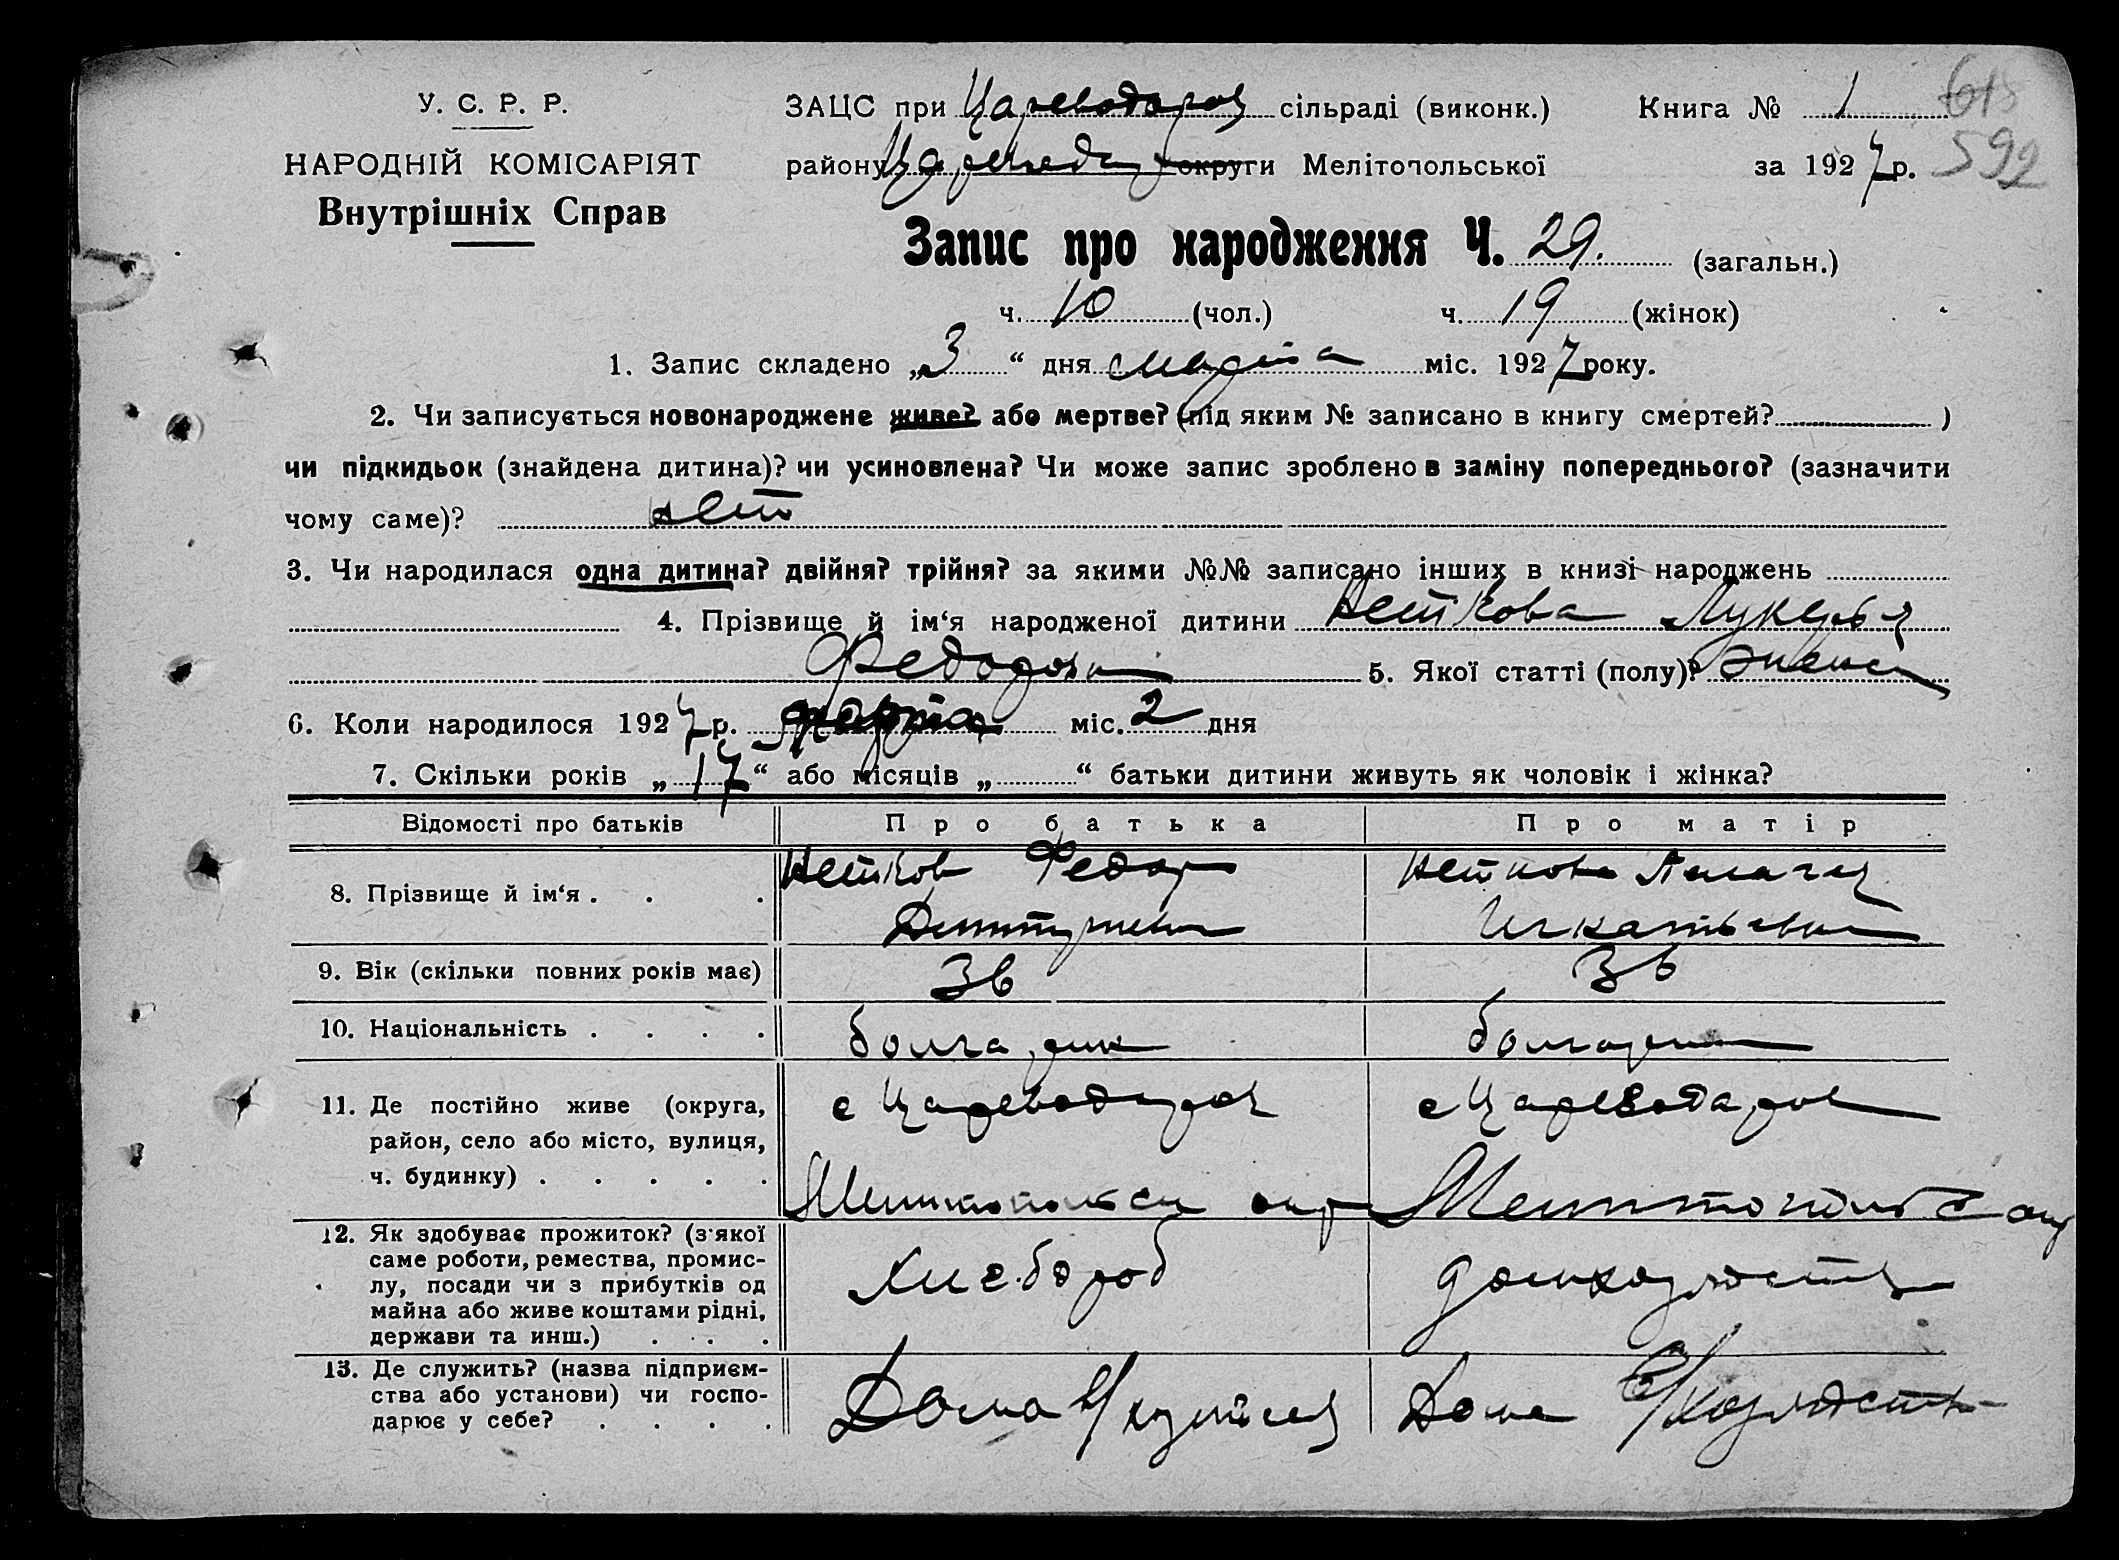 У. С. Р. Р.
НАРОДНІЙ КОМІСАРІЯТ
Внутрішніх Справ
ЗАЦС при Цареводаров сільраді (виконк.) Книга № 1 618
району округи Мелітопольської за 1927 р. 592
Запис про народження Ч. 29. (загальн.)
ч. 10 (чол.) ч. 19 (жінок)
1. Запис складено „3“ дня марта міс. 1927 року.
2. Чи записується новонароджене живе? або мертве? (під яким № записано в книгу смертей? )
чи підкидьок (знайдена дитина)? чи усиновлена? Чи може запис зроблено в заміну попереднього? (зазначити
чому саме)? нет
3. Чи народилася одна дитина? двійня? трійня? за якими №№ записано інших в книзі народжень
4. Прізвище й ім‘я народженої дитини Неткова Лукерья
Федоров 5. Якої статті (полу)? женс
6. Коли народилося 1927 р. марта міс. 2 дня
7. Скільки років „17“ або місяців „ “ батьки дитини живуть як чоловік і жінка?
Відомості про батьків Про батька Про матір
8. Прізвище й ім‘я . . . Нетков Федор Неткова Пелагея
Игнатьевна
9. Вік (скільки повних років має) 36 36
10. Національність . . . . болгарин болгарин
11. Де постійно живе (округа, с Цареводаров с Цареводаров
район, село або місто, вулиця,
ч. будинку) . . . . . Мелитопольск окр Мелитопольс окр
12. Як здобуває прожиток? (з‘якої
саме роботи, ремества, промис-
лу, посади чи з прибутків од хлебороб домхозяйств
майна або живе коштами рідні,
держави та инш.) . . .
13. Де служить? (назва підприєм-
ства або установи) чи госпо- Дома Дома
дарює у себе? . . . .